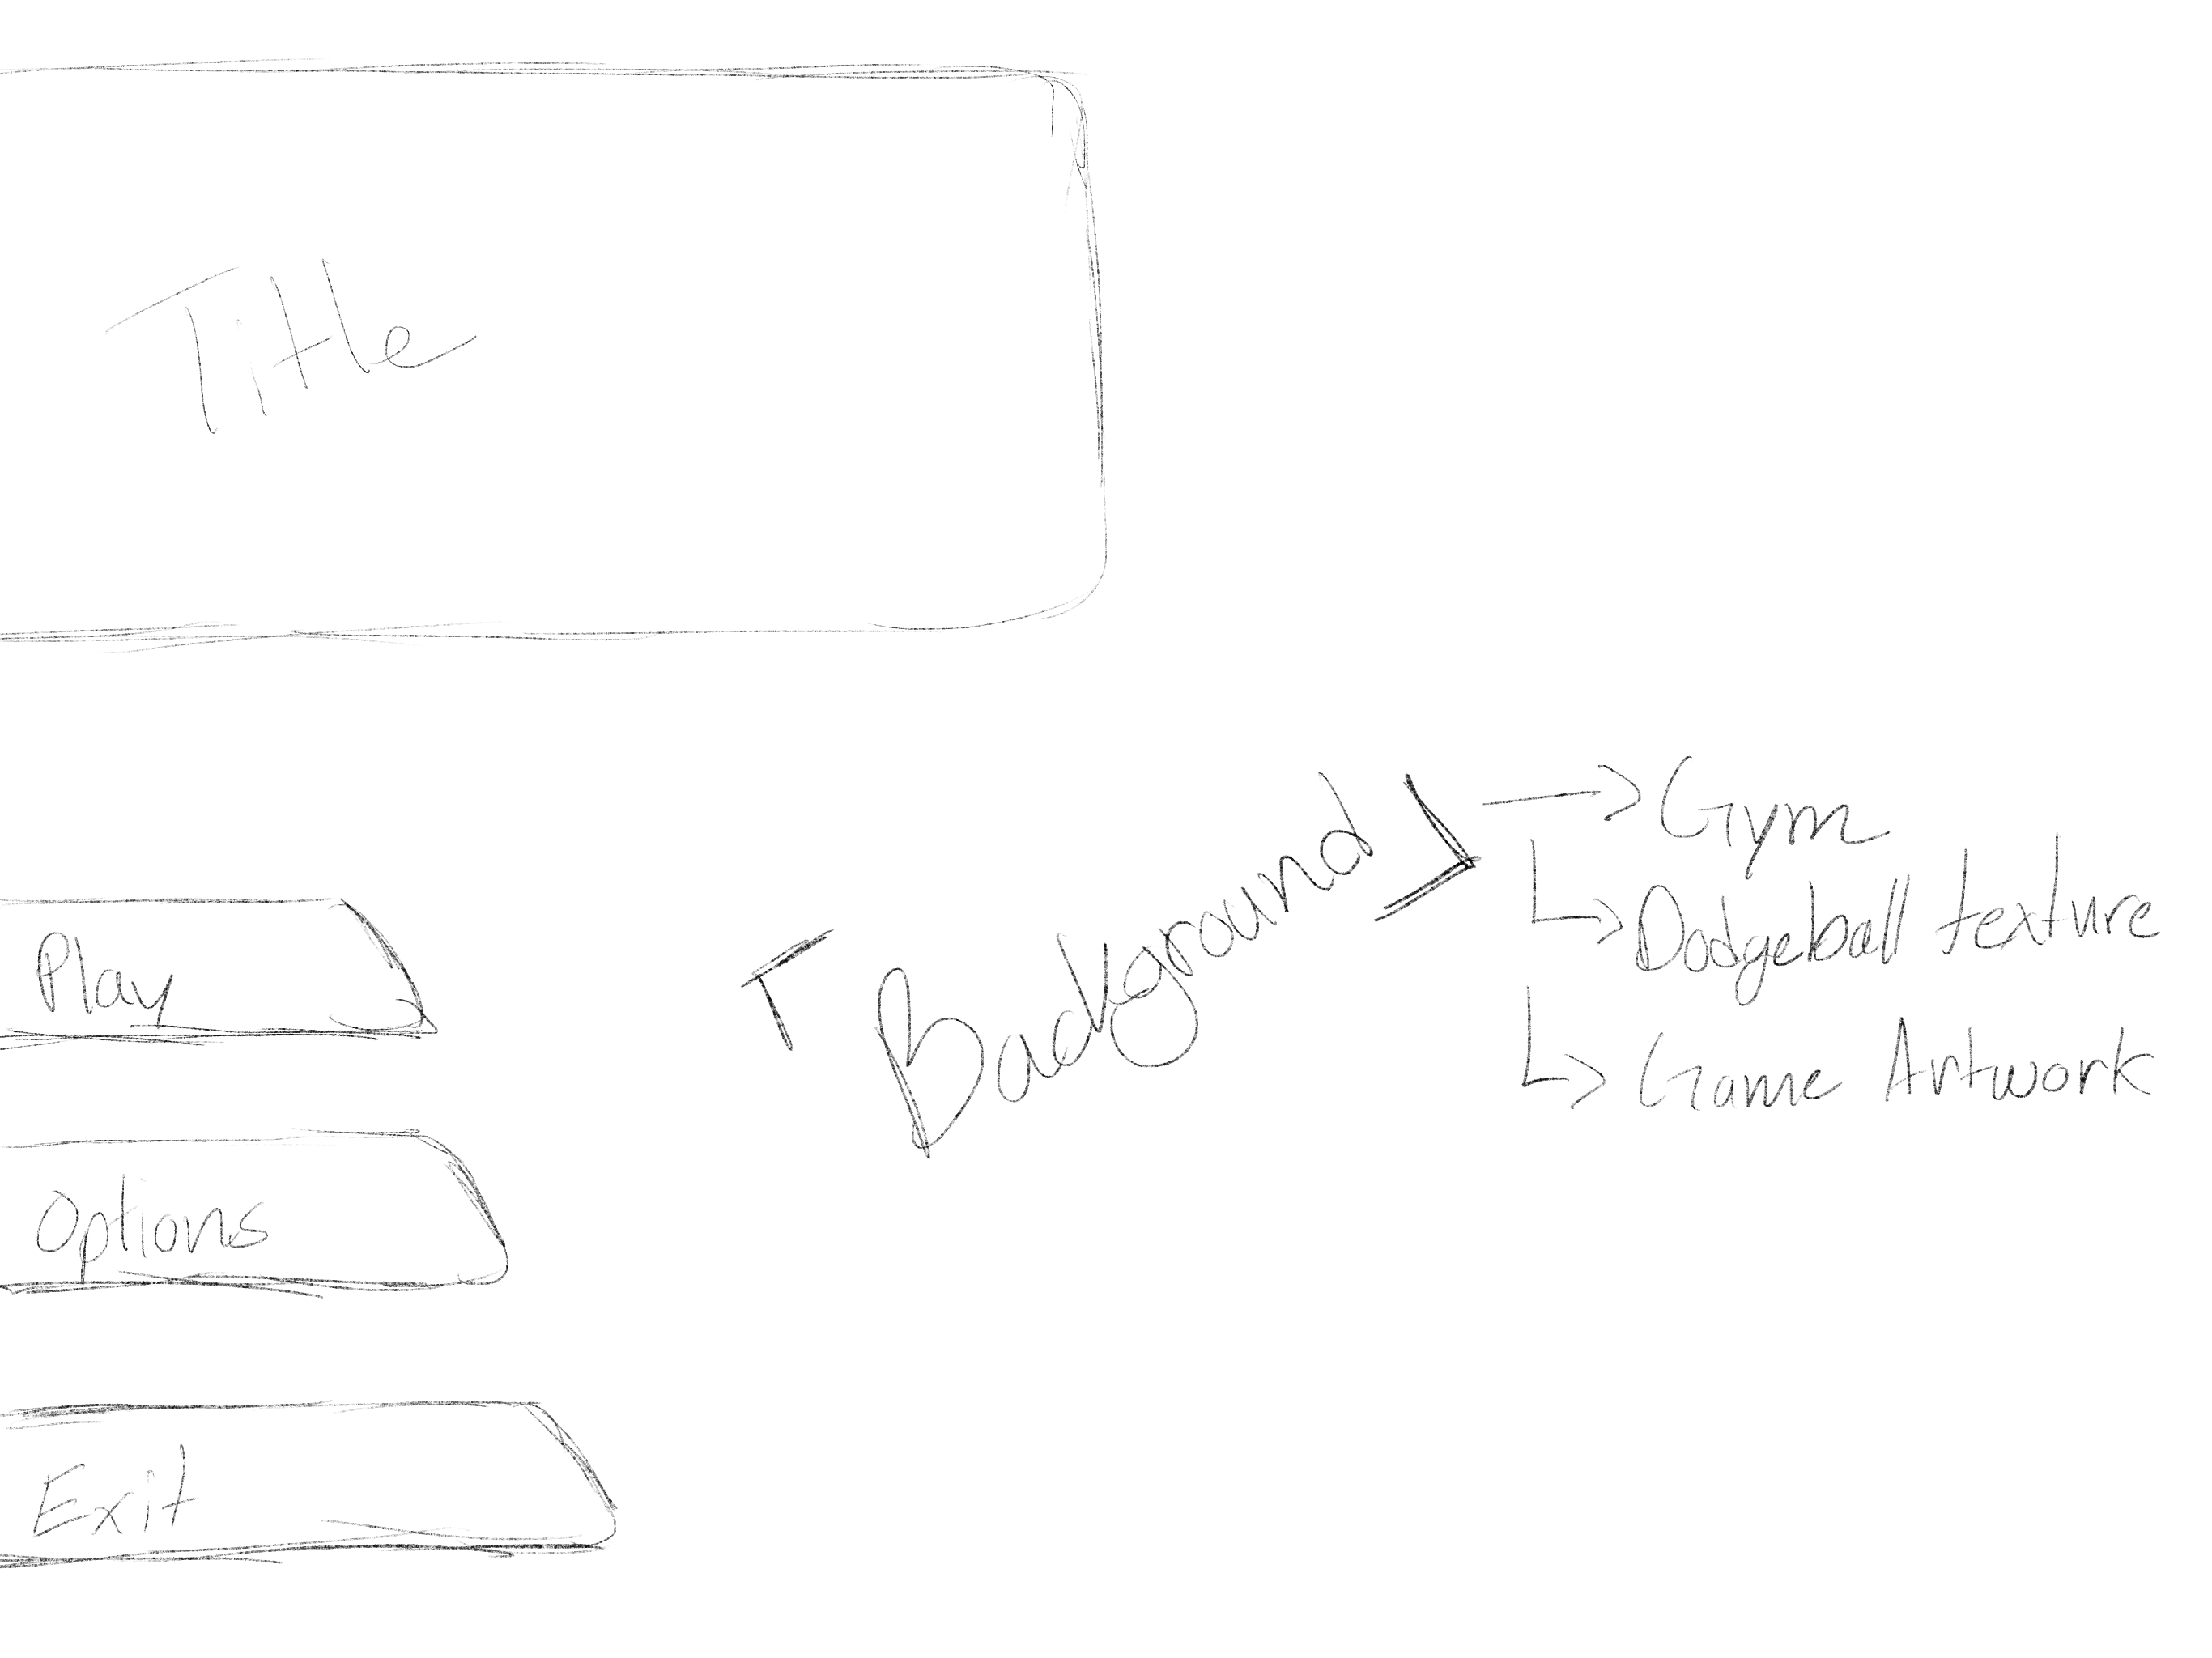 Title
Play
Options
Exit
Background
Gym
Dodgeball texture
Game Artwork